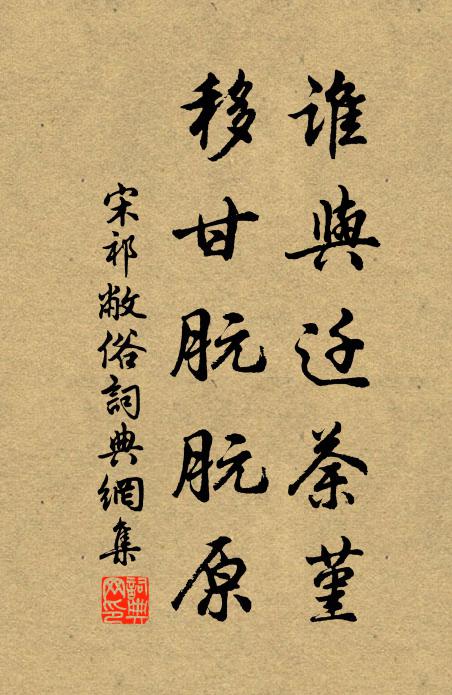 誰與迁荼堇
移甘朊朊原
宋祁敝俗詞典網集
詞典網印